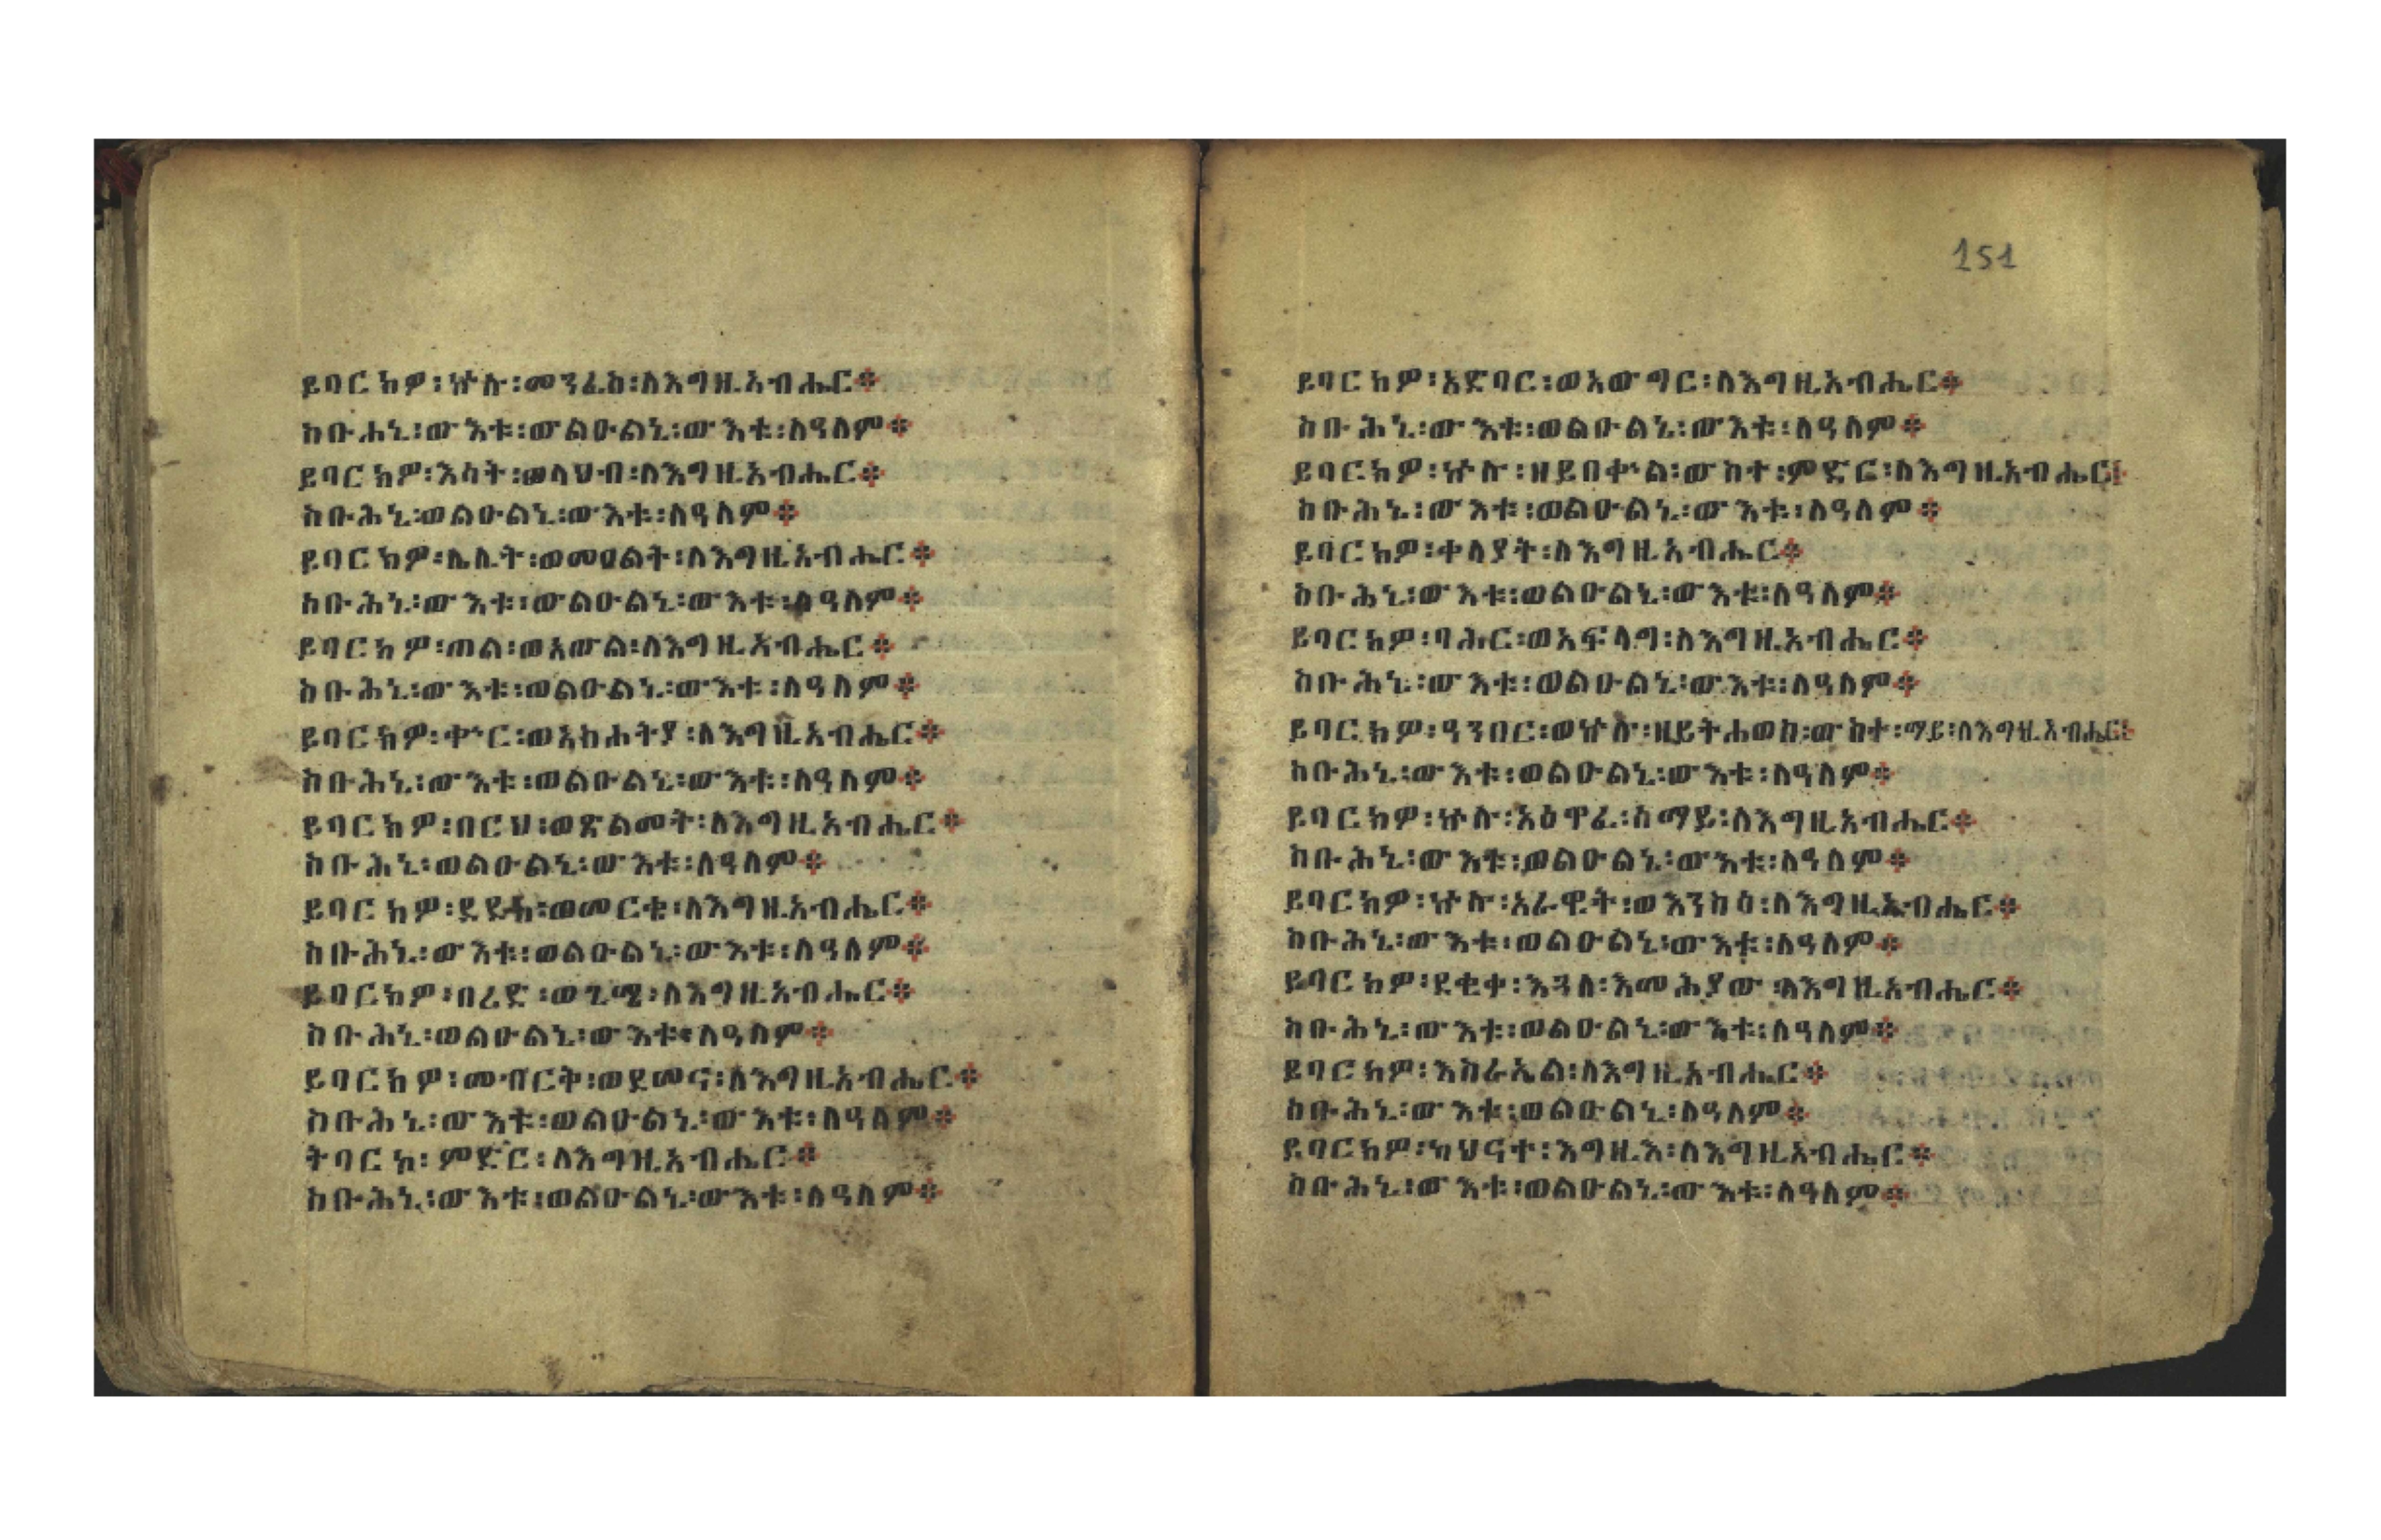 ይባርክዎ፡ኵሉ፡መንፈስ፡ለእግዚአብሔር።
ስቡሐኒ፡ውእቱ፡ውልዑልኒ፡ውእቱ፡ለዓለም።
ይባርክዎ፡እሳት፡ወላህብ፡ለእግዚአብሔር።
ስቡሕኒ፡ወልዑልኒ፡ውእቱ፡ለዓለም።
ይባርክዎ፡ሌሊት፡ወመዐልት፡ለእግዚአብሔር።
ስቡሕኒ፡ውእቱ፡ውልዑልኒ፡ውእቱ፡ለዓለም።
ይባርክዎ፡ጠል፡ወአውል፡ለእግዚአብሔር።
ስቡሕኒ፡ውእቱ፡ወልዑልኒ፡ውእቱ፡ለዓለም።
ይባርክዎ፡ቍር፡ወአስሐትያ፡ለእግዚአብሔር።
ስቡሕኒ፡ውእቱ፡ወልዑልኒ፡ውእቱ፡ለዓለም።
ይባርክዎ፡በርህ፡ወጽልመት፡ለእግዚአብሔር።
ስቡሕኒ፡ወልዑልኒ፡ውእቱ፡ለዓለም።
ይባርክዎ፡ደደክ፡ወመርቄ፡ለእግዚአብሔር።
ስቡሕኒ፡ውእቱ፡ወልዑልኒ፡ውእቱ፡ለዓለም።
ይባርክዎ፡በረድ፡ወጊሜ፡ለእግዚአብሔር።
ስቡሕኒ፡ወልዑልኒ፡ውእቱ፡ለዓለም።
ይባርክዎ፡መብርቅ፡ወደመና፡ለእግዚአብሔር።
ስቡሕኒ፡ውእቱ፡ወልዑልኒ፡ውእቱ፡ለዓለም።
ትባርኮ፡ምድር፡ለእግዚአብሔር።
ስቡሕኒ፡ውእቱ፡ወልዑልኒ፡ውእቱ፡ለዓለም።
151
ይባርክዎ፡አድባር፡ወአውግር፡ለእግዚአብሔር።
ስቡሕኒ፡ውእቱ፡ወልዑልኒ፡ውእቱ፡ለዓለም።
ይባርክዎ፡ኵሉ፡ዘይበቍል፡ውስተ፡ምድር፡ለእግዚአብሔር።
ስቡሕኒ፡ውእቱ፡ወልዑልኒ፡ውእቱ፡ለዓለም።
ይባርክዎ፡ቀላያት፡ለእግዚአብሔር።
ስቡሕኒ፡ውእቱ፡ወልዑልኒ፡ውእቱ፡ለዓለም።
ይባርክዎ፡ባሕር፡ወአፍላግ፡ለእግዚአብሔር።
ስቡሕኒ፡ውእቱ፡ወልዑልኒ፡ውእቱ፡ለዓለም።
ይባርክዎ፡ዓንበር፡ወኵሉ፡ዘይትሐወስ፡ውስተ፡ማይ፡ለእግዚአብሔር።
ስቡሕኒ፡ውእቱ፡ወልዑልኒ፡ውእቱ፡ለዓለም።
ይባርክዎ፡ኵሉ፡አዕዋፈ፡ሰማይ፡ለእግዚአብሔር።
ስቡሕኒ፡ውእቱ፡ወልዑልኒ፡ውእቱ፡ለዓለም።
ይባርክዎ፡ኵሉ፡አራዊት፡ወእንስሳ፡ለእግዚአብሔር።
ስቡሕኒ፡ውእቱ፡ወልዑልኒ፡ውእቱ፡ለዓለም።
ይባርክዎ፡ደቂቀ፡እጓለ፡እመሕያው፡ለእግዚአብሔር።
ስቡሕኒ፡ውእቱ፡ወልዑልኒ፡ውእቱ፡ለዓለም።
ይባርክዎ፡እስራኤል፡ለእግዚአብሔር።
ስቡሕኒ፡ውእቱ፡ወልዑልኒ፡ለዓለም።
ይባርክዎ፡ካህናተ፡እግዚእ፡ለእግዚአብሔር።
ስቡሕኒ፡ውእቱ፡ወልዑልኒ፡ውእቱ፡ለዓለም።